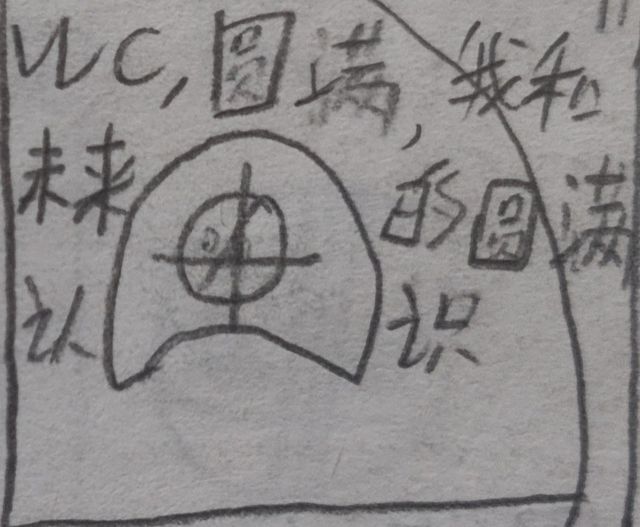 WC,圆满,我和
未来的圆满
认识